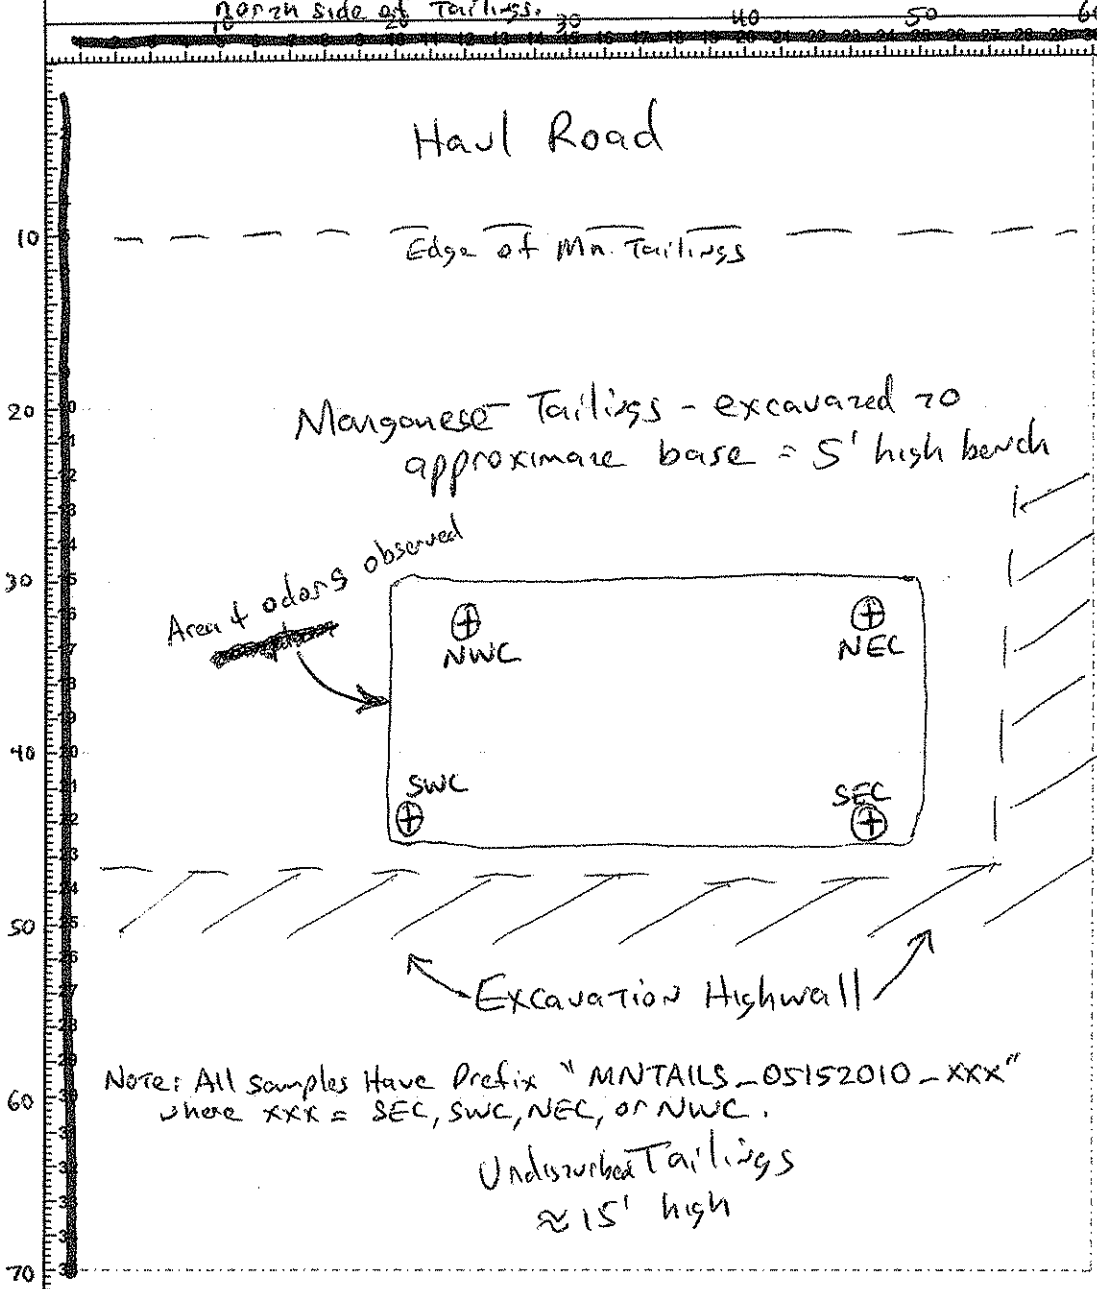 north side of Tailings.
10 20 30 40 50 60
Haul Road
10
Edge of Mn. Tailings
20
Manganese Tailings - excavated to
approximate base = 5' high bench
30
Area of odors observed
NWC
NEC
40
SWC
SEC
50
Excavation Highwall
Note: All samples Have Prefix "MNTAILS_05152010_XXX"
60
where XXX = SEC, SWC, NEC, or NWC.
Undisturbed Tailings
≈ 15' high
70